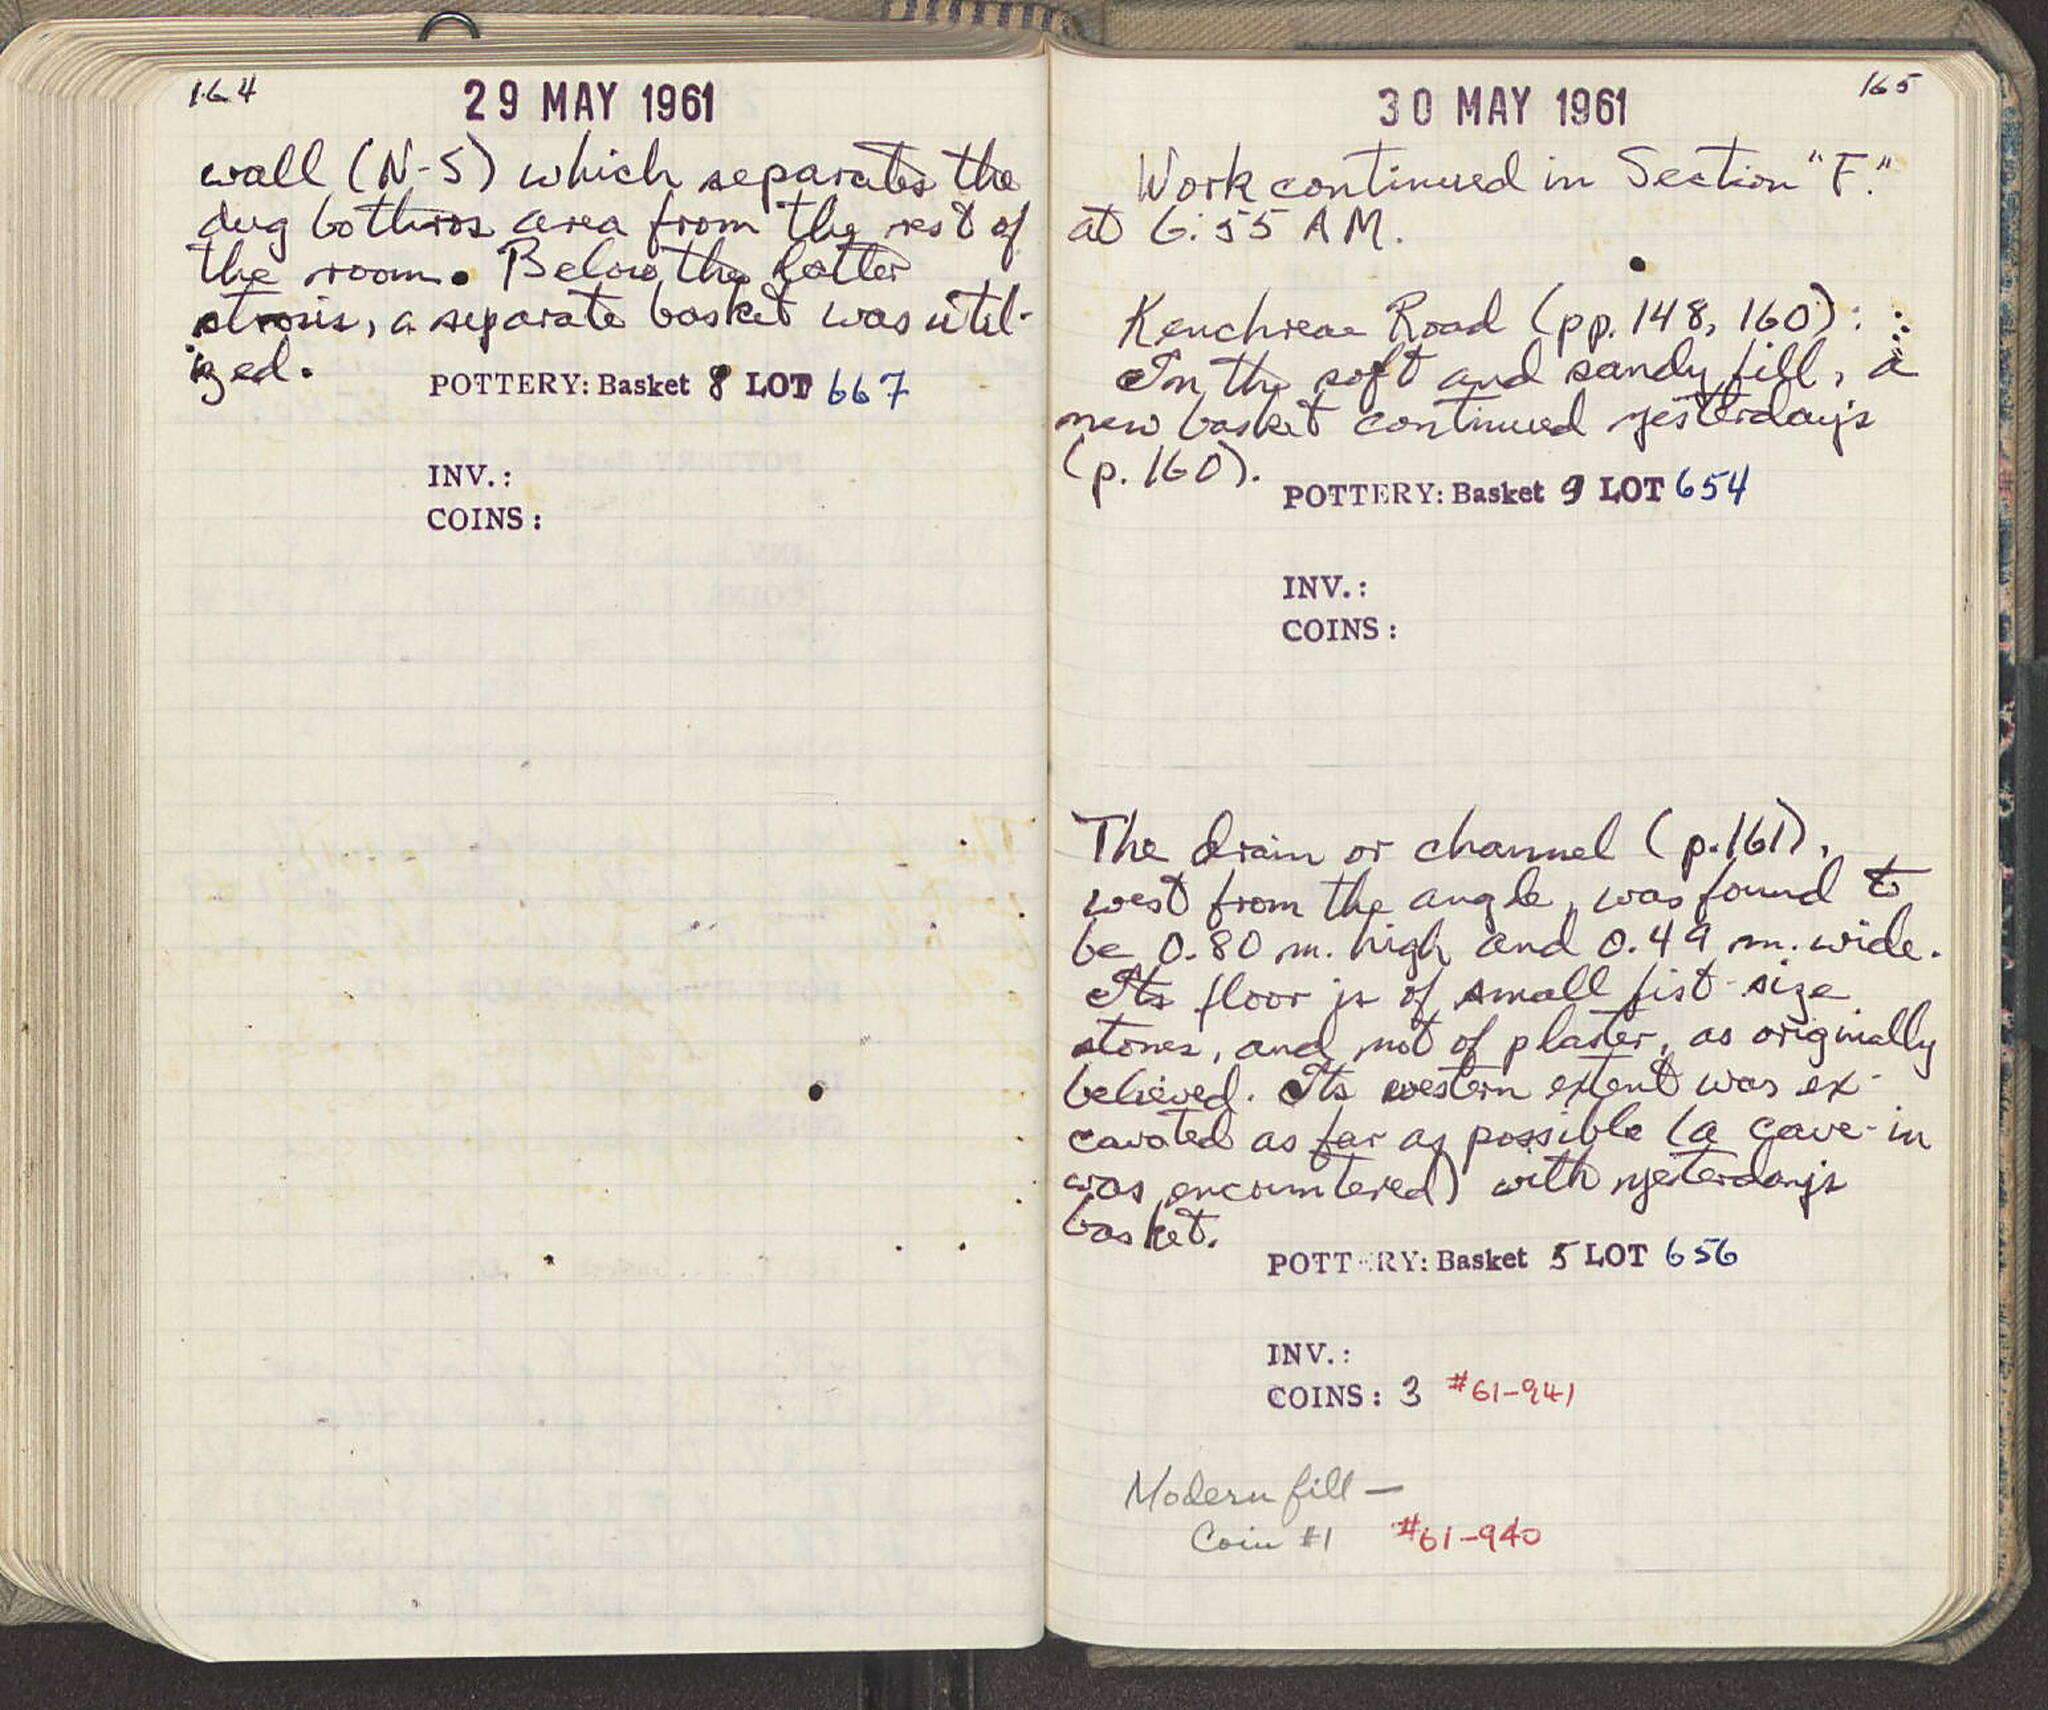 164
29 MAY 1961
wall (N-S) which separates the
dug bothros area from the rest of
the room. Below the latter
strosis, a separate basket was util-
ized.
POTTERY: Basket 8 LOT 667
INV.:
COINS:
165
30 MAY 1961
Work continued in Section "F."
at 6:55 AM.
Kenchreae Road (pp. 148, 160):
In the soft and sandy fill, a
new basket continued yesterday's
(p. 160).
POTTERY: Basket 9 LOT 654
INV.:
COINS:
The drain or channel (p. 161),
west from the angle, was found to
be 0.80 m. high and 0.49 m. wide.
Its floor is of small fist-size
stones, and not of plaster, as originally
believed. Its western extent was ex-
cavated as far as possible (a cave-in
was encountered) with yesterday's
basket.
POTT RY: Basket 5 LOT 656
INV.:
COINS: 3 #61-941
Modern fill —
Coin #1 #61-940